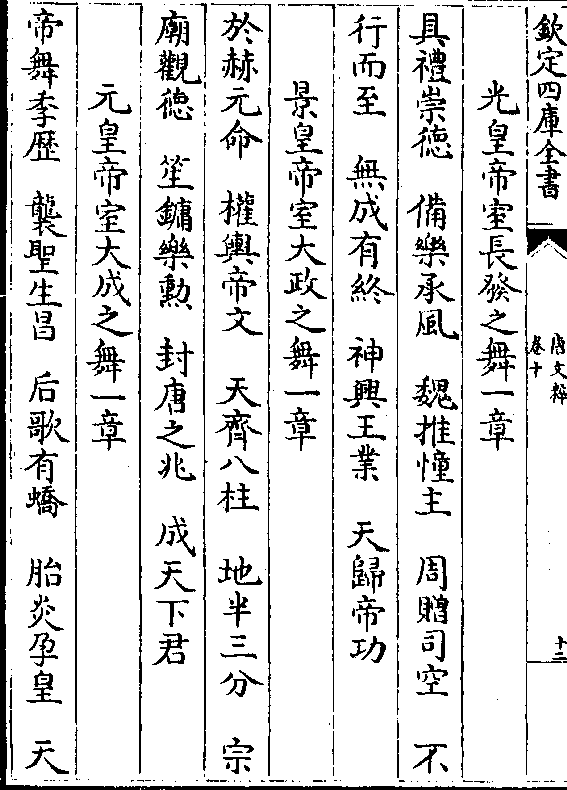 欽定四庫全書
唐文粹
卷十
十二
光皇帝室長發之舞一章
具禮崇德　備樂承風　魏推幢主　周贈司空　不
行而至　無成有終　神興王業　天歸帝功
景皇帝室大政之舞一章
於赫元命　權輿帝文　天齊八柱　地半三分　宗
廟觀德　笙鏞樂勲　封唐之兆　成天下君
元皇帝室大成之舞一章
帝舞季歴　襲聖生昌　后歌有蟜　胎炎孕皇　天